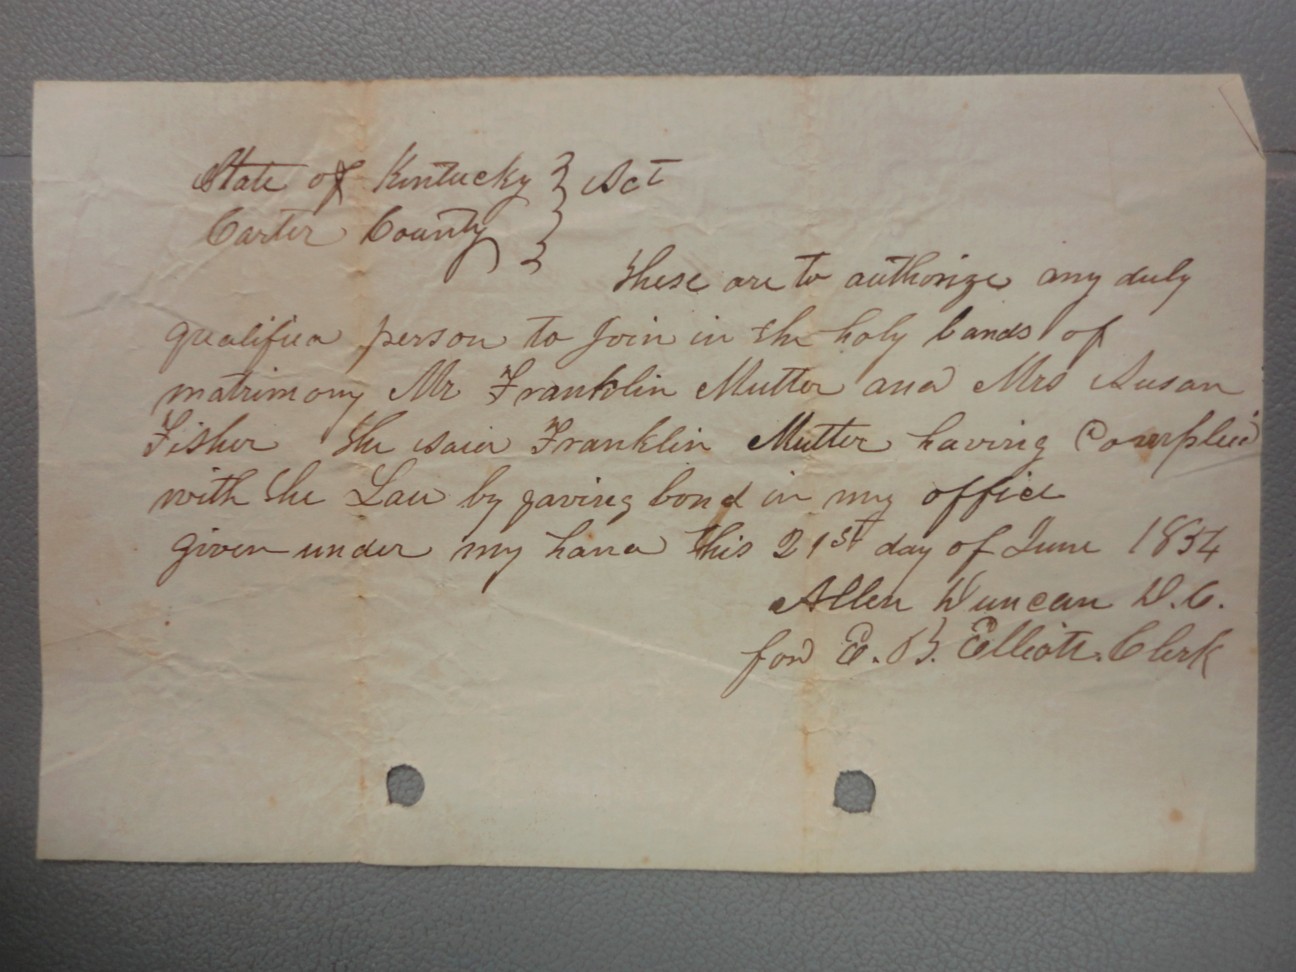 State of Kentucky } Sct
Carter County }
These are to authorize any duly
qualified person to join in the holy bands of
matrimony Mr Franklin Mutter and Mrs Susan
Fisher The said Franklin Mutter having Complied
with the Law by gaving bond in my office
given under my hand this 21st day of June 1854
Allen Duncan D.C.
for E. B. Elliott. Clerk